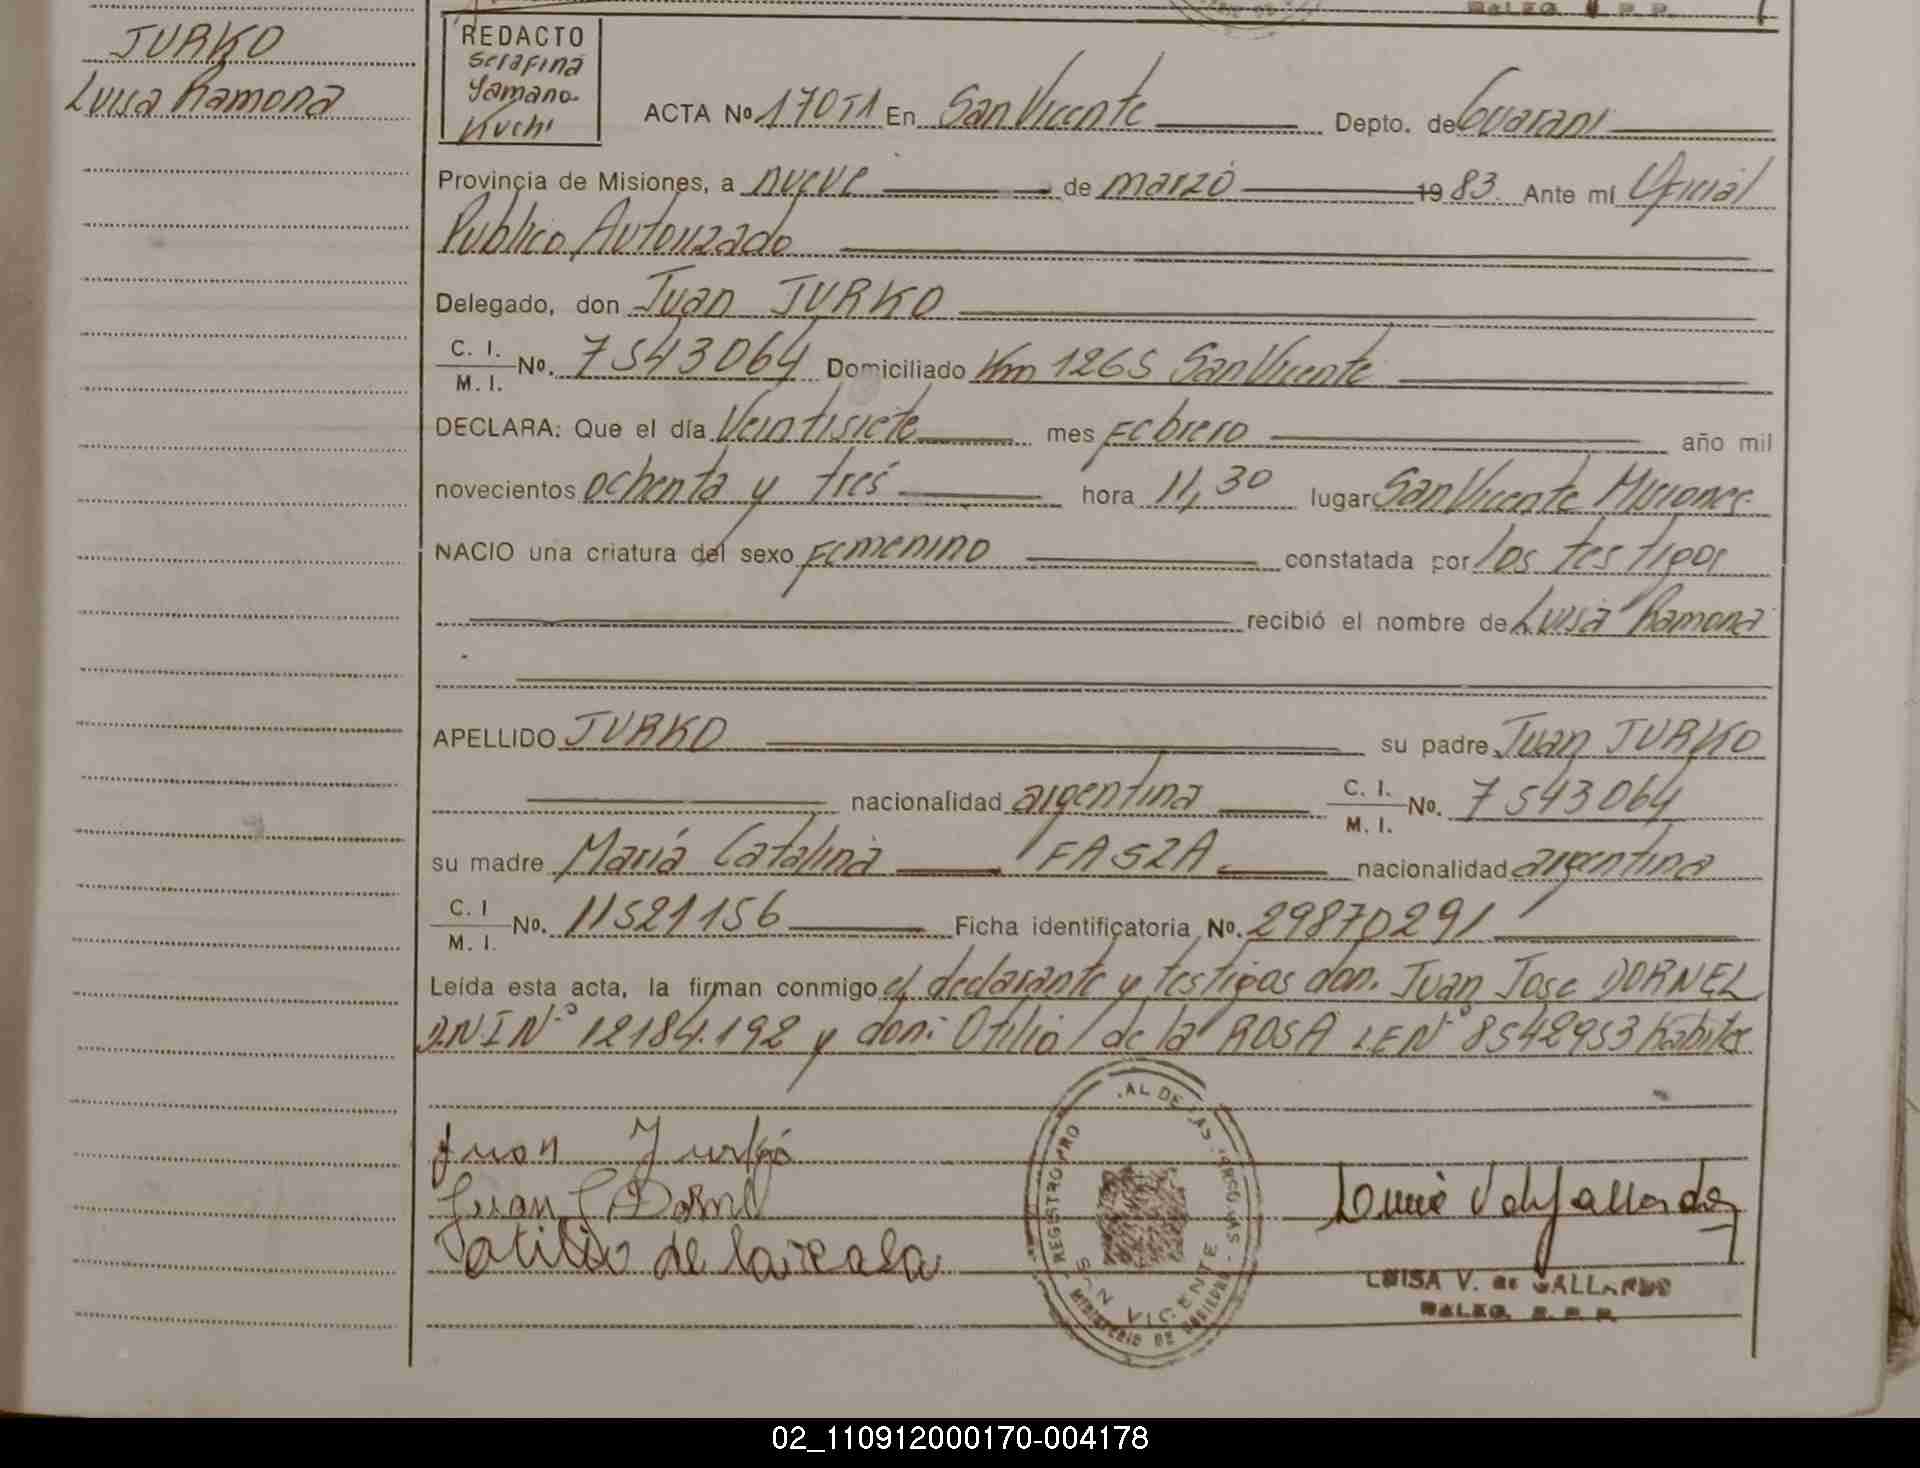 JURKO
Luisa Ramona
REDACTO
Serafina
Yamano
Kuchi
ACTA Nº 170T1 En San Vicente Depto. de Guarani
Provincia de Misiones, a nueve de marzo 1983. Ante mí Oficial
Publico Autorizado
Delegado, don Juan JURKO
C. I.
M. I. Nº. 7543064 Domiciliado Km 1265 San Vicente
DECLARA: Que el día Veintisiete mes Febrero año mil
novecientos ochenta y tres hora 11,30 lugar San Vicente Misiones
NACIO una criatura del sexo Femenino constatada por los testigos
recibió el nombre de Luisa Ramona
APELLIDO JURKO su padre Juan JURKO
nacionalidad argentina C. I. M. I. Nº. 7543064
su madre María Catalina FASZA nacionalidad argentina
C. I M. I. Nº. 11521156 Ficha identificatoria Nº. 29870291
Leída esta acta, la firman conmigo el declarante y testigos don. Juan Jose DORNEL
D.N.I Nº 12184.192 y don: Otilio de la ROSA L.E Nº 8542953 habiles
Juan Jurko
Juan J Dornel
otilio de la rosa
REGISTRO PRO AL DE LAS PERSONAS
SAN VICENTE
MINISTERIO DE GOBIERNO
LUISA V. de GALLARDO
DELEG. R. P. P.
02_110912000170-004178